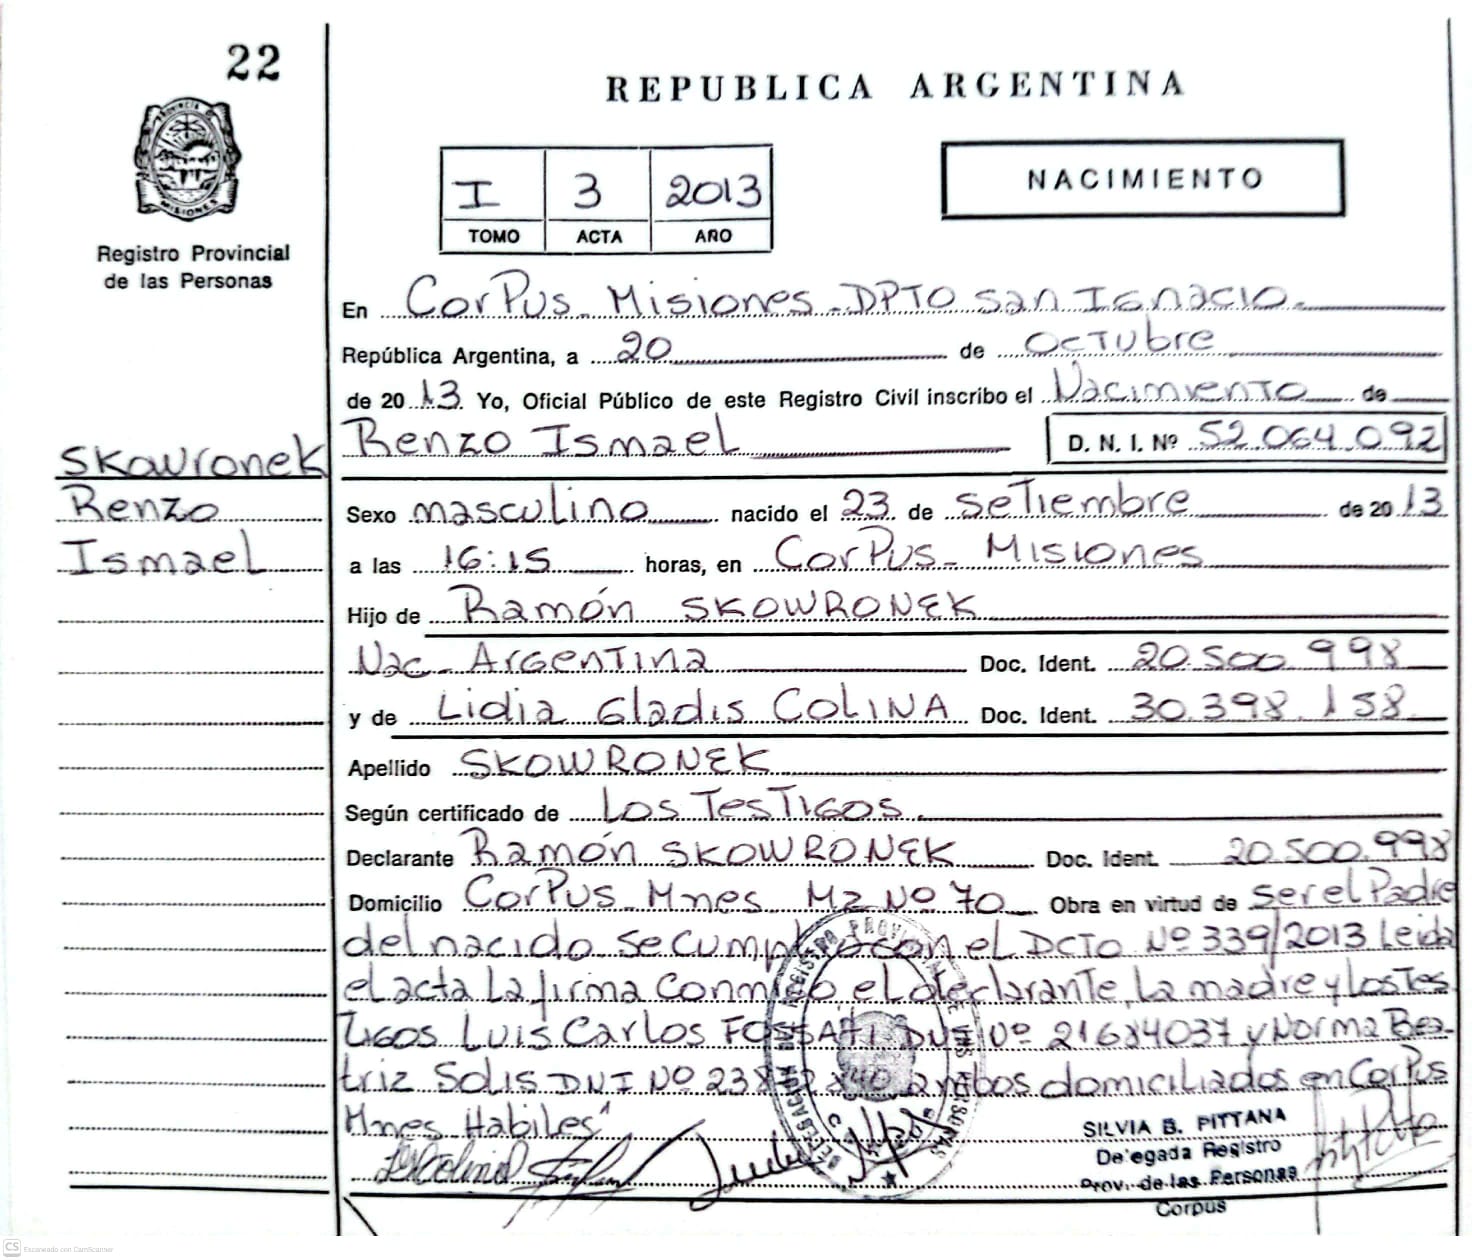 22
REPUBLICA ARGENTINA
PROVINCIA DE
MISIONES
Registro Provincial
de las Personas
I 3 2013
TOMO ACTA AÑO
NACIMIENTO
En Corpus - Misiones - DPTO San Ignacio.
República Argentina, a 20 de Octubre
de 2013 Yo, Oficial Público de este Registro Civil inscribo el Nacimiento de
Renzo Ismael D. N. I. Nº 52.064.092
Skowronek
Renzo
Ismael
Sexo masculino nacido el 23 de setiembre de 2013
a las 16:15 horas, en Corpus - Misiones
Hijo de Ramón SKOWRONEK
Nac. Argentina Doc. Ident. 20.500.998
y de Lidia Gladis COLINA Doc. Ident. 30.398.158
Apellido SKOWRONEK
Según certificado de Los Testigos.
Declarante Ramón SKOWRONEK Doc. Ident. 20.500.998
Domicilio Corpus - Mnes Mz Nº 70 Obra en virtud de ser el Padre
del nacido se cumplió con el DCTO Nº 339/2013 Leida
el acta la firma conmigo el declarante, la madre y los Tes
tigos Luis Carlos FOSSATI DNI Nº 21684037 y Norma Bea-
triz Solis DNI Nº ambos domiciliados en Corpus
Mnes Habiles
SILVIA B. PITTANA
Delegada Registro
Prov. de las Personas
Corpus
CS Escaneado con CamScanner